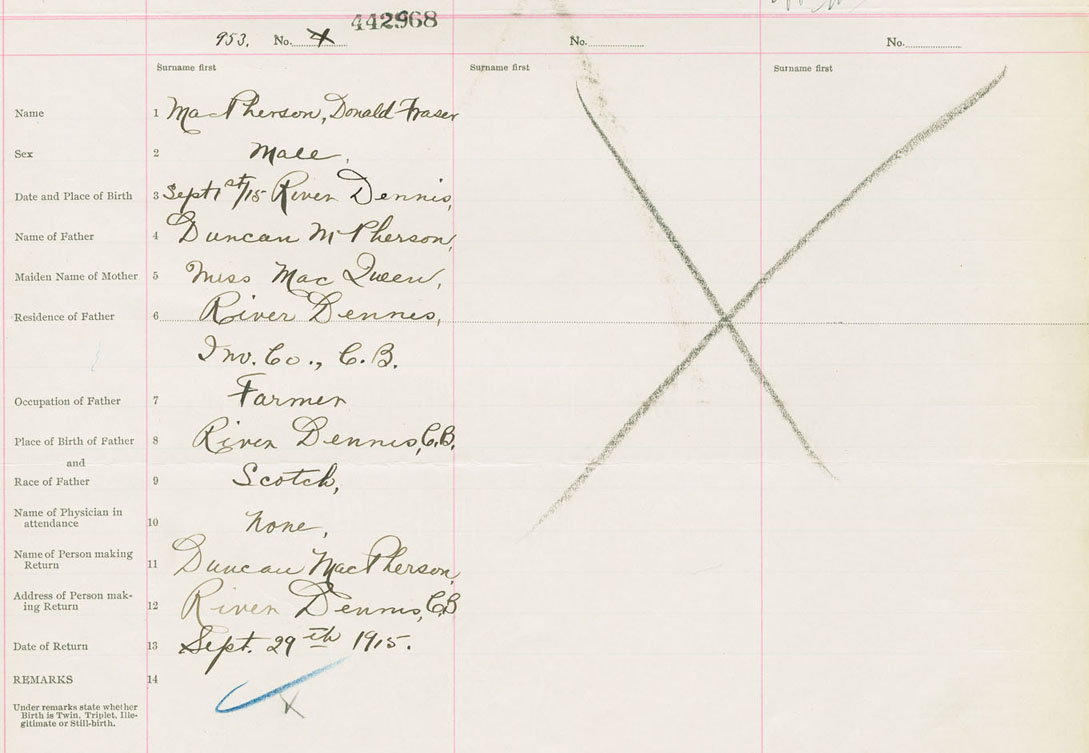 442968
953. No. X No. No.
Surname first Surname first Surname first
Name 1 MacPherson, Donald Fraser
Sex 2 Male,
Date and Place of Birth 3 Sept 1st/15 River Dennis,
Name of Father 4 Duncan McPherson,
Maiden Name of Mother 5 Miss MacQueen,
Residence of Father 6 River Dennis,
Inv. Co., C.B.
Occupation of Father 7 Farmer
Place of Birth of Father 8 River Dennis, C.B.
and
Race of Father 9 Scotch,
Name of Physician in
attendance 10 None,
Name of Person making
Return 11 Duncan MacPherson,
Address of Person mak-
ing Return 12 River Dennis, C.B
Date of Return 13 Sept. 29th 1915.
REMARKS 14
X
Under remarks state whether
Birth is Twin, Triplet, Ille-
gitimate or Still-birth.